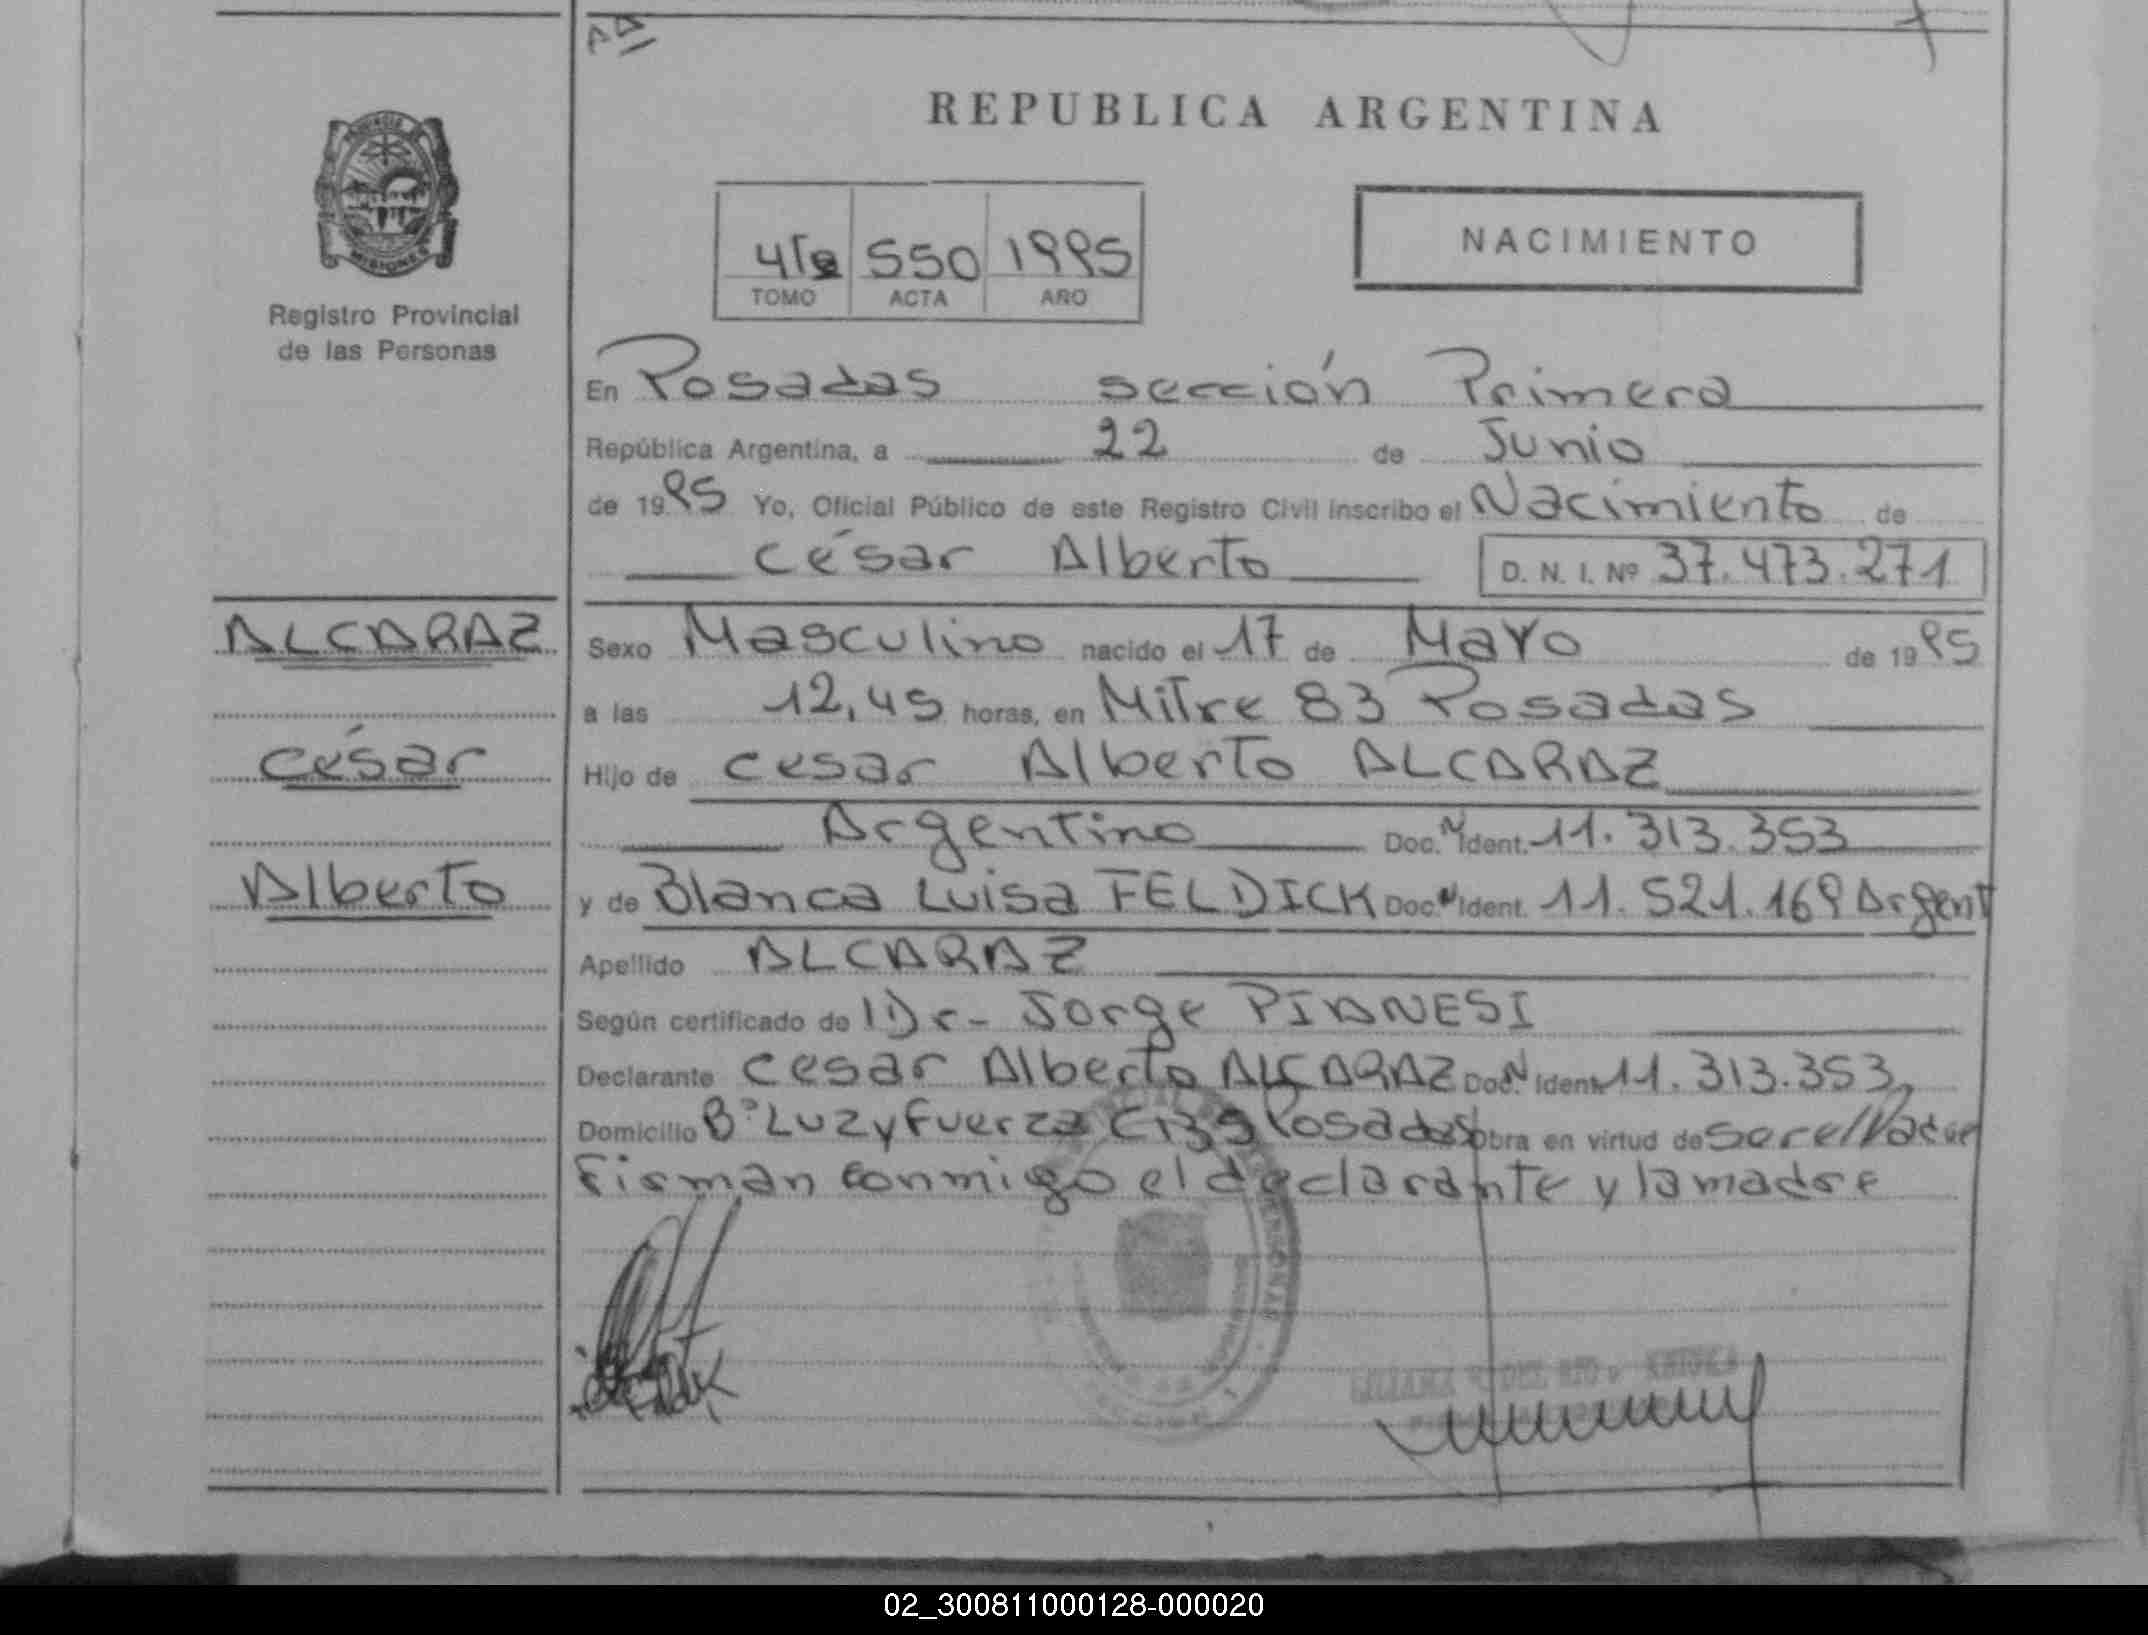 REPUBLICA ARGENTINA
PROVINCIA DE
MISIONES
Registro Provincial
de las Personas
550 1995
TOMO ACTA AÑO
NACIMIENTO
En Posadas sección Primera
República Argentina, a 22 de Junio
de 1995 Yo, Oficial Público de este Registro Civil inscribo el Nacimiento de
César Alberto D. N. I. Nº 37.473.271
ALCARAZ
César
Alberto
Sexo Masculino nacido el 17 de Mayo de 1995
a las 12,45 horas, en Mitre 83 Posadas
Hijo de Cesar Alberto ALCARAZ
Argentino Doc. N Ident. 11.313.353
y de Blanca Luisa FELDICK Doc. N Ident. 11.521.169 Argent
Apellido ALCARAZ
Según certificado de Dr- Jorge PIANESI
Declarante Cesar Alberto ALCARAZ Doc. N Ident. 11.313.353
Domicilio Bº Luz y Fuerza C139 Posadas obra en virtud de ser el Padre
Firman conmigo el declarante y la madre
02_300811000128-000020